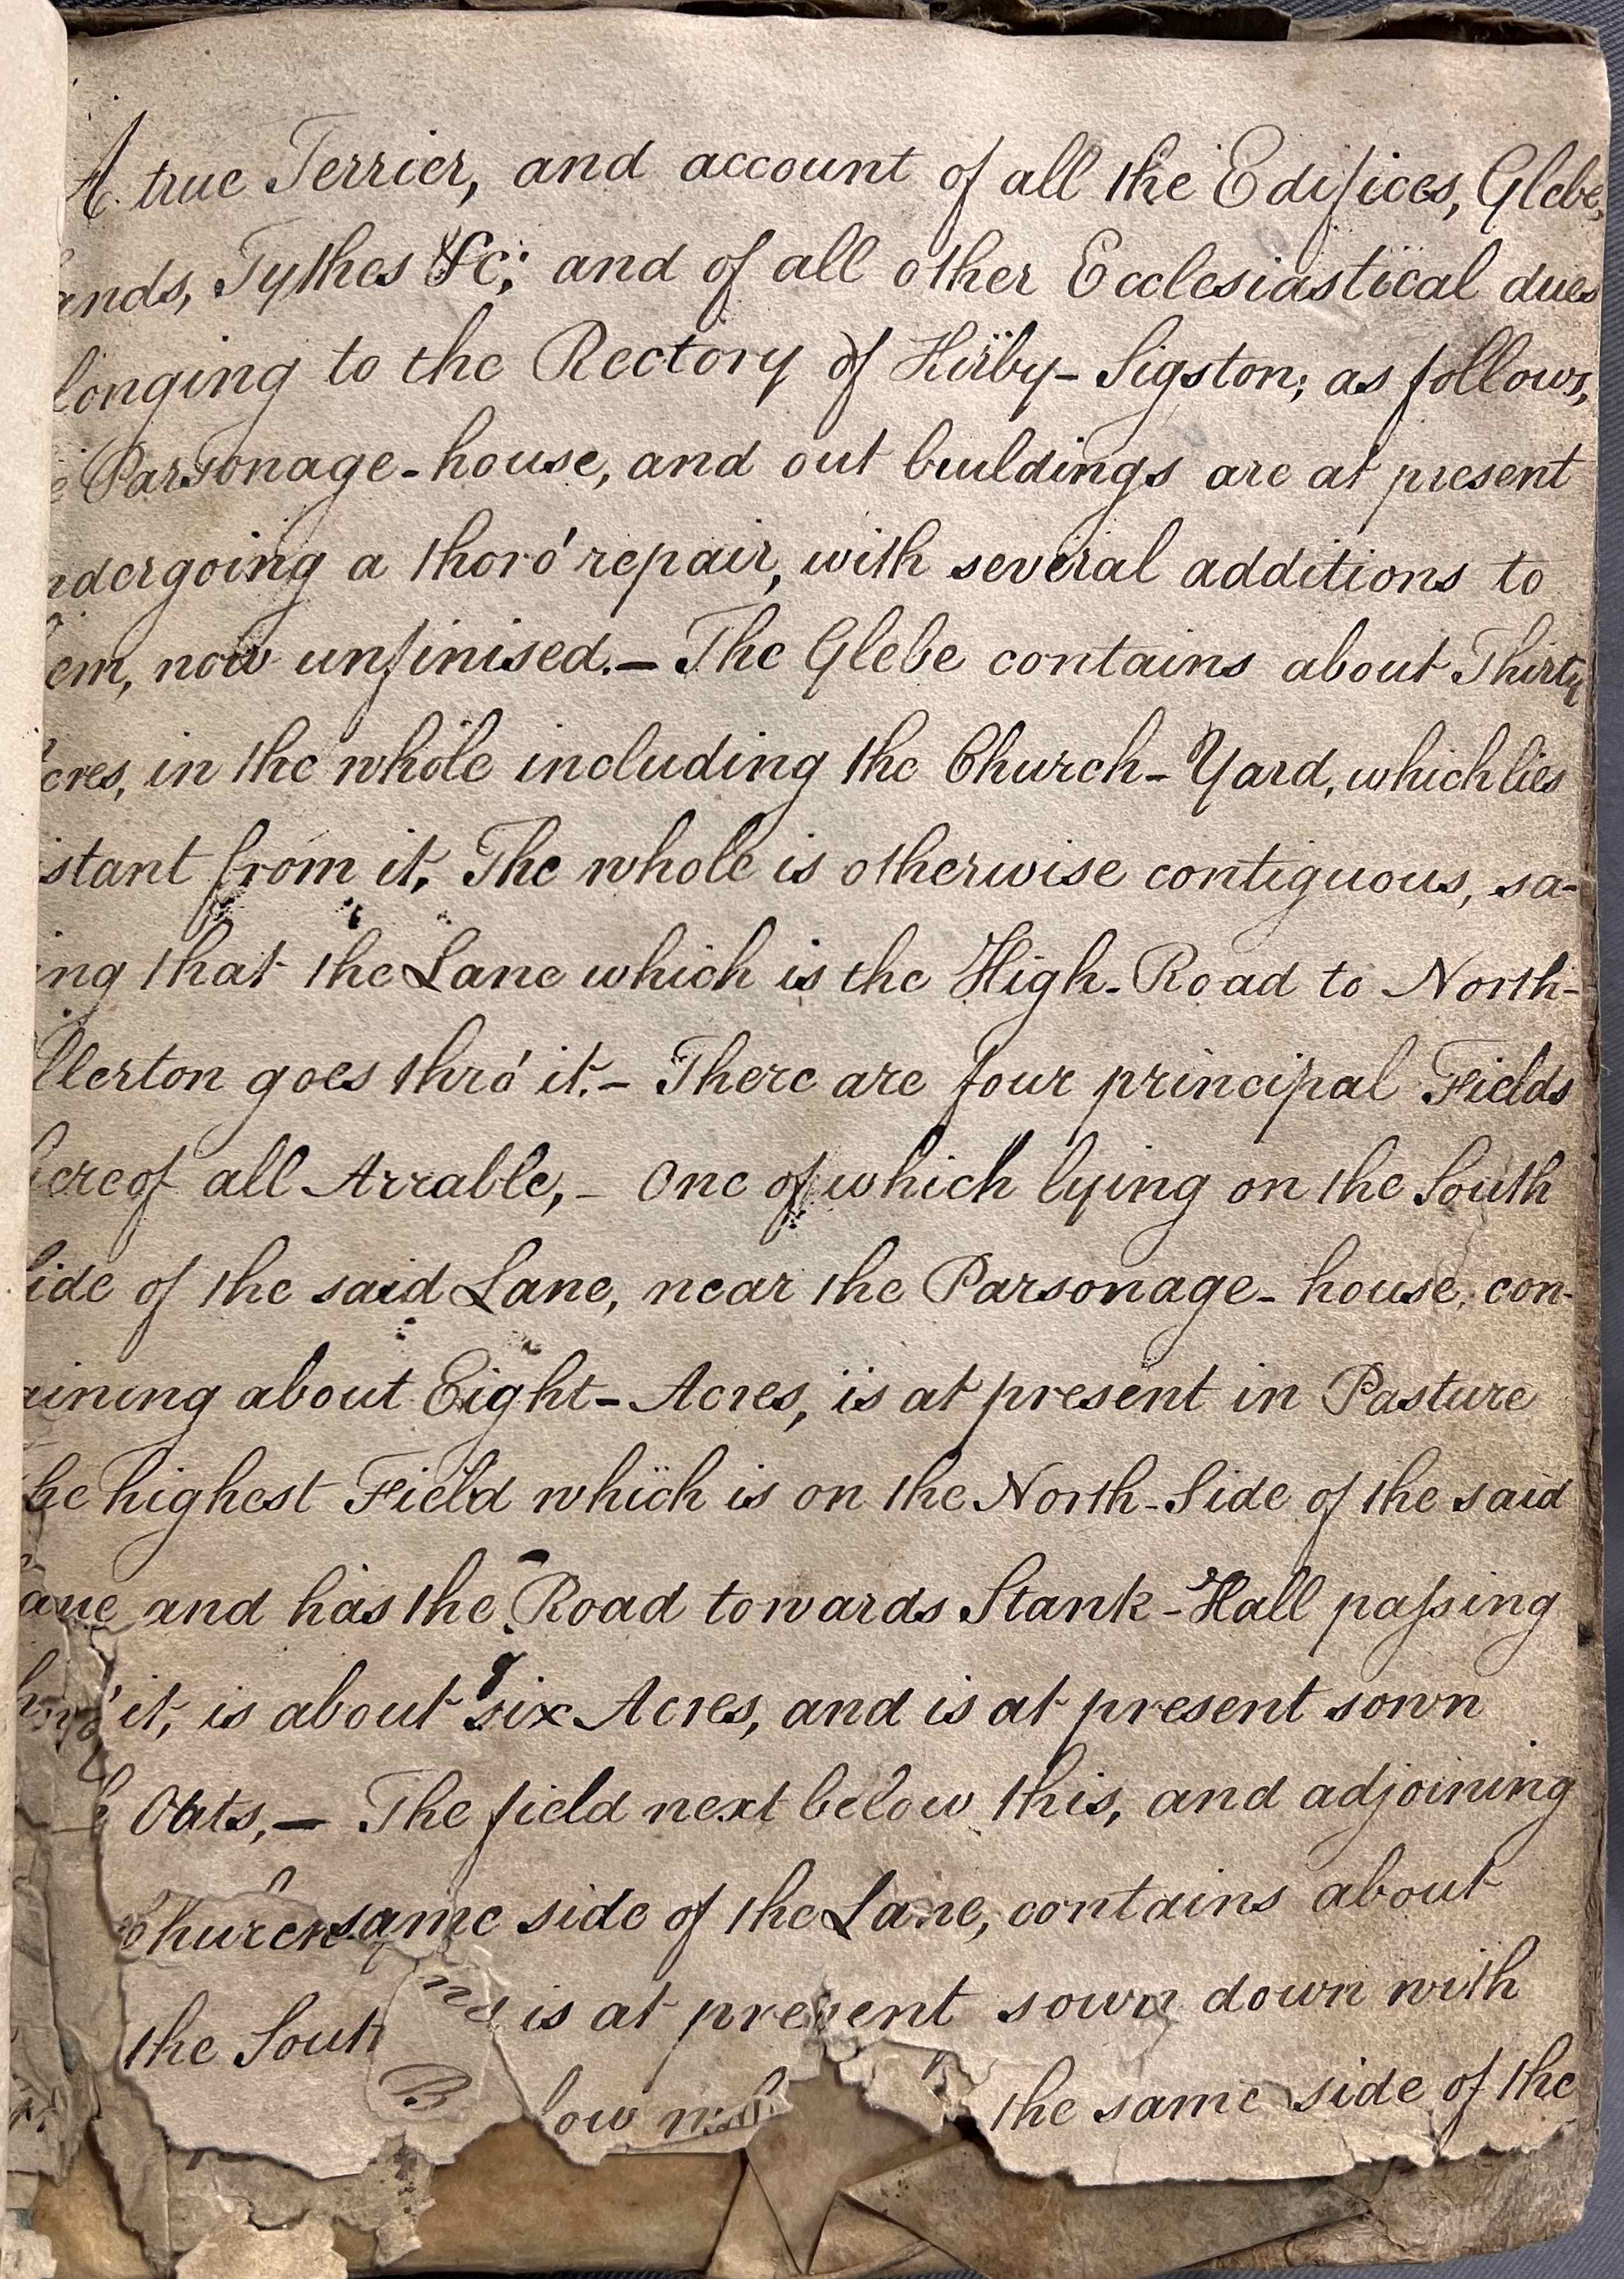 A true Terrier, and account of all the Edifices, Glebe,
ands, Tythes &c; and of all other Ecclesiastical dues
longing to the Rectory of Kirby-Sigston; as follows,
e Parsonage-house, and out buildings are at present
ndergoing a thoro' repair, with several additions to
em, now unfinised.— The Glebe contains about Thirty
cres, in the whole including the Church-Yard, which lies
stant from it, The whole is otherwise contiguous, sa-
ing that the Lane which is the High-Road to North-
llerton goes thro' it.— There are four principal Fields
hereof all Arrable,— One of which lying on the South
Side of the said Lane, near the Parsonage-house, con-
aining about Eight-Acres, is at present in Pasture
he highest Field which is on the North-Side of the said
ane and has the Road towards Stank-Hall passing
it, is about six Acres, and is at present sown
Oats,— The field next below this, and adjoining
Church same side of the Lane, contains about
the Sout is at present sown down with
B low the same side of the